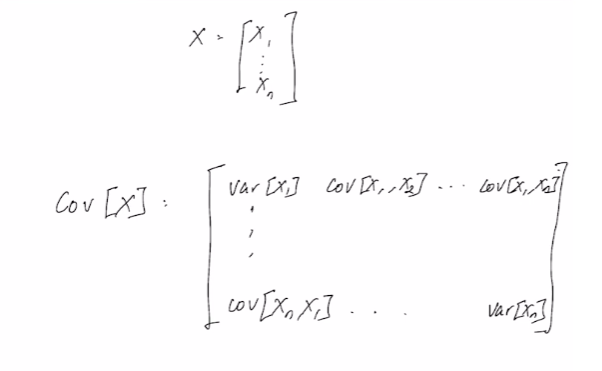 X = [X₁
⋮
Xₙ]
Cov[X] = [var[X₁] cov[X₁, X₂] ... cov[X₁, Xₙ]
⋮
cov[Xₙ X₁] ... var[Xₙ]]